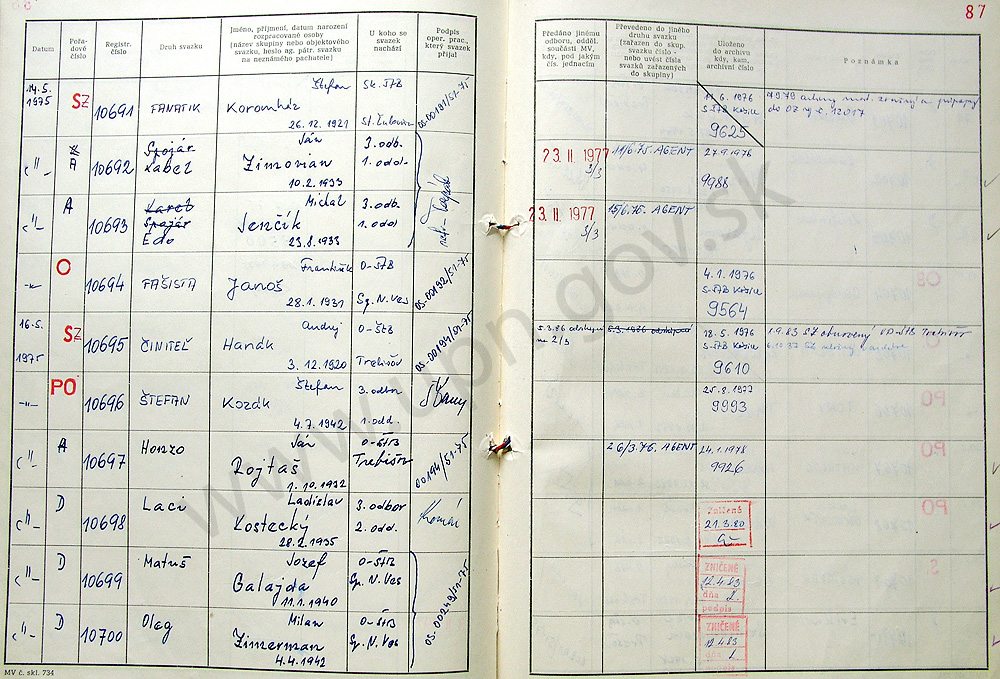 87
Datum
Pořa-
dové
číslo
Registr.
číslo
Druh svazku
Jméno, příjmení, datum narození
rozpracované osoby
(název skupiny nebo objektového
svazku, heslo ag. pátr. svazku
na neznámého pachatele)
U koho se
svazek
nachází
Podpis
oper. prac.,
který svazek
přijal
Předáno jinému
odboru, odděl.
součásti MV,
kdy, pod jakým
čís. jednacím
Převedeno do jiného
druhu svazku
(zařazen do skup.
svazku číslo -
nebo uvést čísla
svazků zařazených
do skupiny)
Uloženo
do archivu
kdy, kam,
archivní číslo
Poznámka
14.5.
1975
SZ
10691
FANATIK
Štefan
Koromház
26.12.1921
OS-00191/51-75
11.6.1976
S-ŠTB Košice
9625
A
10692
Spojár
Kábel
Ján
Zimovian
10.2.1933
3.odb.
1.odd.
23.11.1977
3/3
11/6.75. AGENT
27.9.1976
9986
A
10693
Karel
Spojár
Edo
Michal
Jenčík
23.8.1933
3.odb
1.odd
23.11.1977
3/3
15/6.76. AGENT
O
10694
FAŠISTA
František
Janoš
28.1.1931
O-ŠTB
Sp.N.Ves
OS-00192/51-75
4.1.1976
S-ŠTB Košice
9564
16.5.
1975
SZ
10695
ČINITEĽ
Andrej
Handk
3.12.1920
O-ŠtB
Trebišov
OS-00194/51-75
18.5.1976
S-ŠTB Košice
9610
PO
10696
ŠTEFAN
Štefan
Kozák
4.7.1942
3.odbor
1.odd.
25.8.1977
9993
A
10697
Honzo
Ján
Rojtaš
1.10.1932
O-ŠTB
Trebišov
00194/51-75
26/3.76. AGENT
24.1.1978
9926
D
10698
Laci
Ladislav
Kostecký
28.2.1935
3.odbor
2.odd.
Zničené
21.3.80
D
10699
Matúš
Jozef
Galajda
11.1.1940
O-ŠTB
Sp.N.Ves
OS-00249/51-75
ZNIČENÉ
12.4.83
dňa
podpis
D
10700
Oleg
Milan
Zimerman
4.4.1942
O-ŠTB
Sp.N.Ves
ZNIČENÉ
12.4.83
dňa
podpis
MV č. skl. 734
www.upn.gov.sk